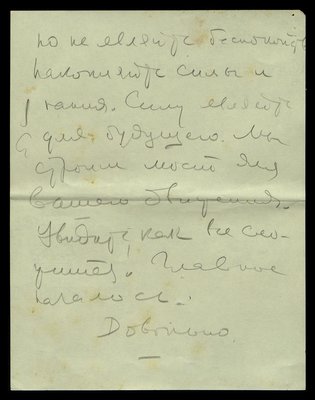 но не являйте беспокойств
накопляйте силы и
знания. Силу являйте
для будущего. Мы
строим мост для
вашего движения.
Увидите, как все сло-
жится. Главное
началось.
Довольно.